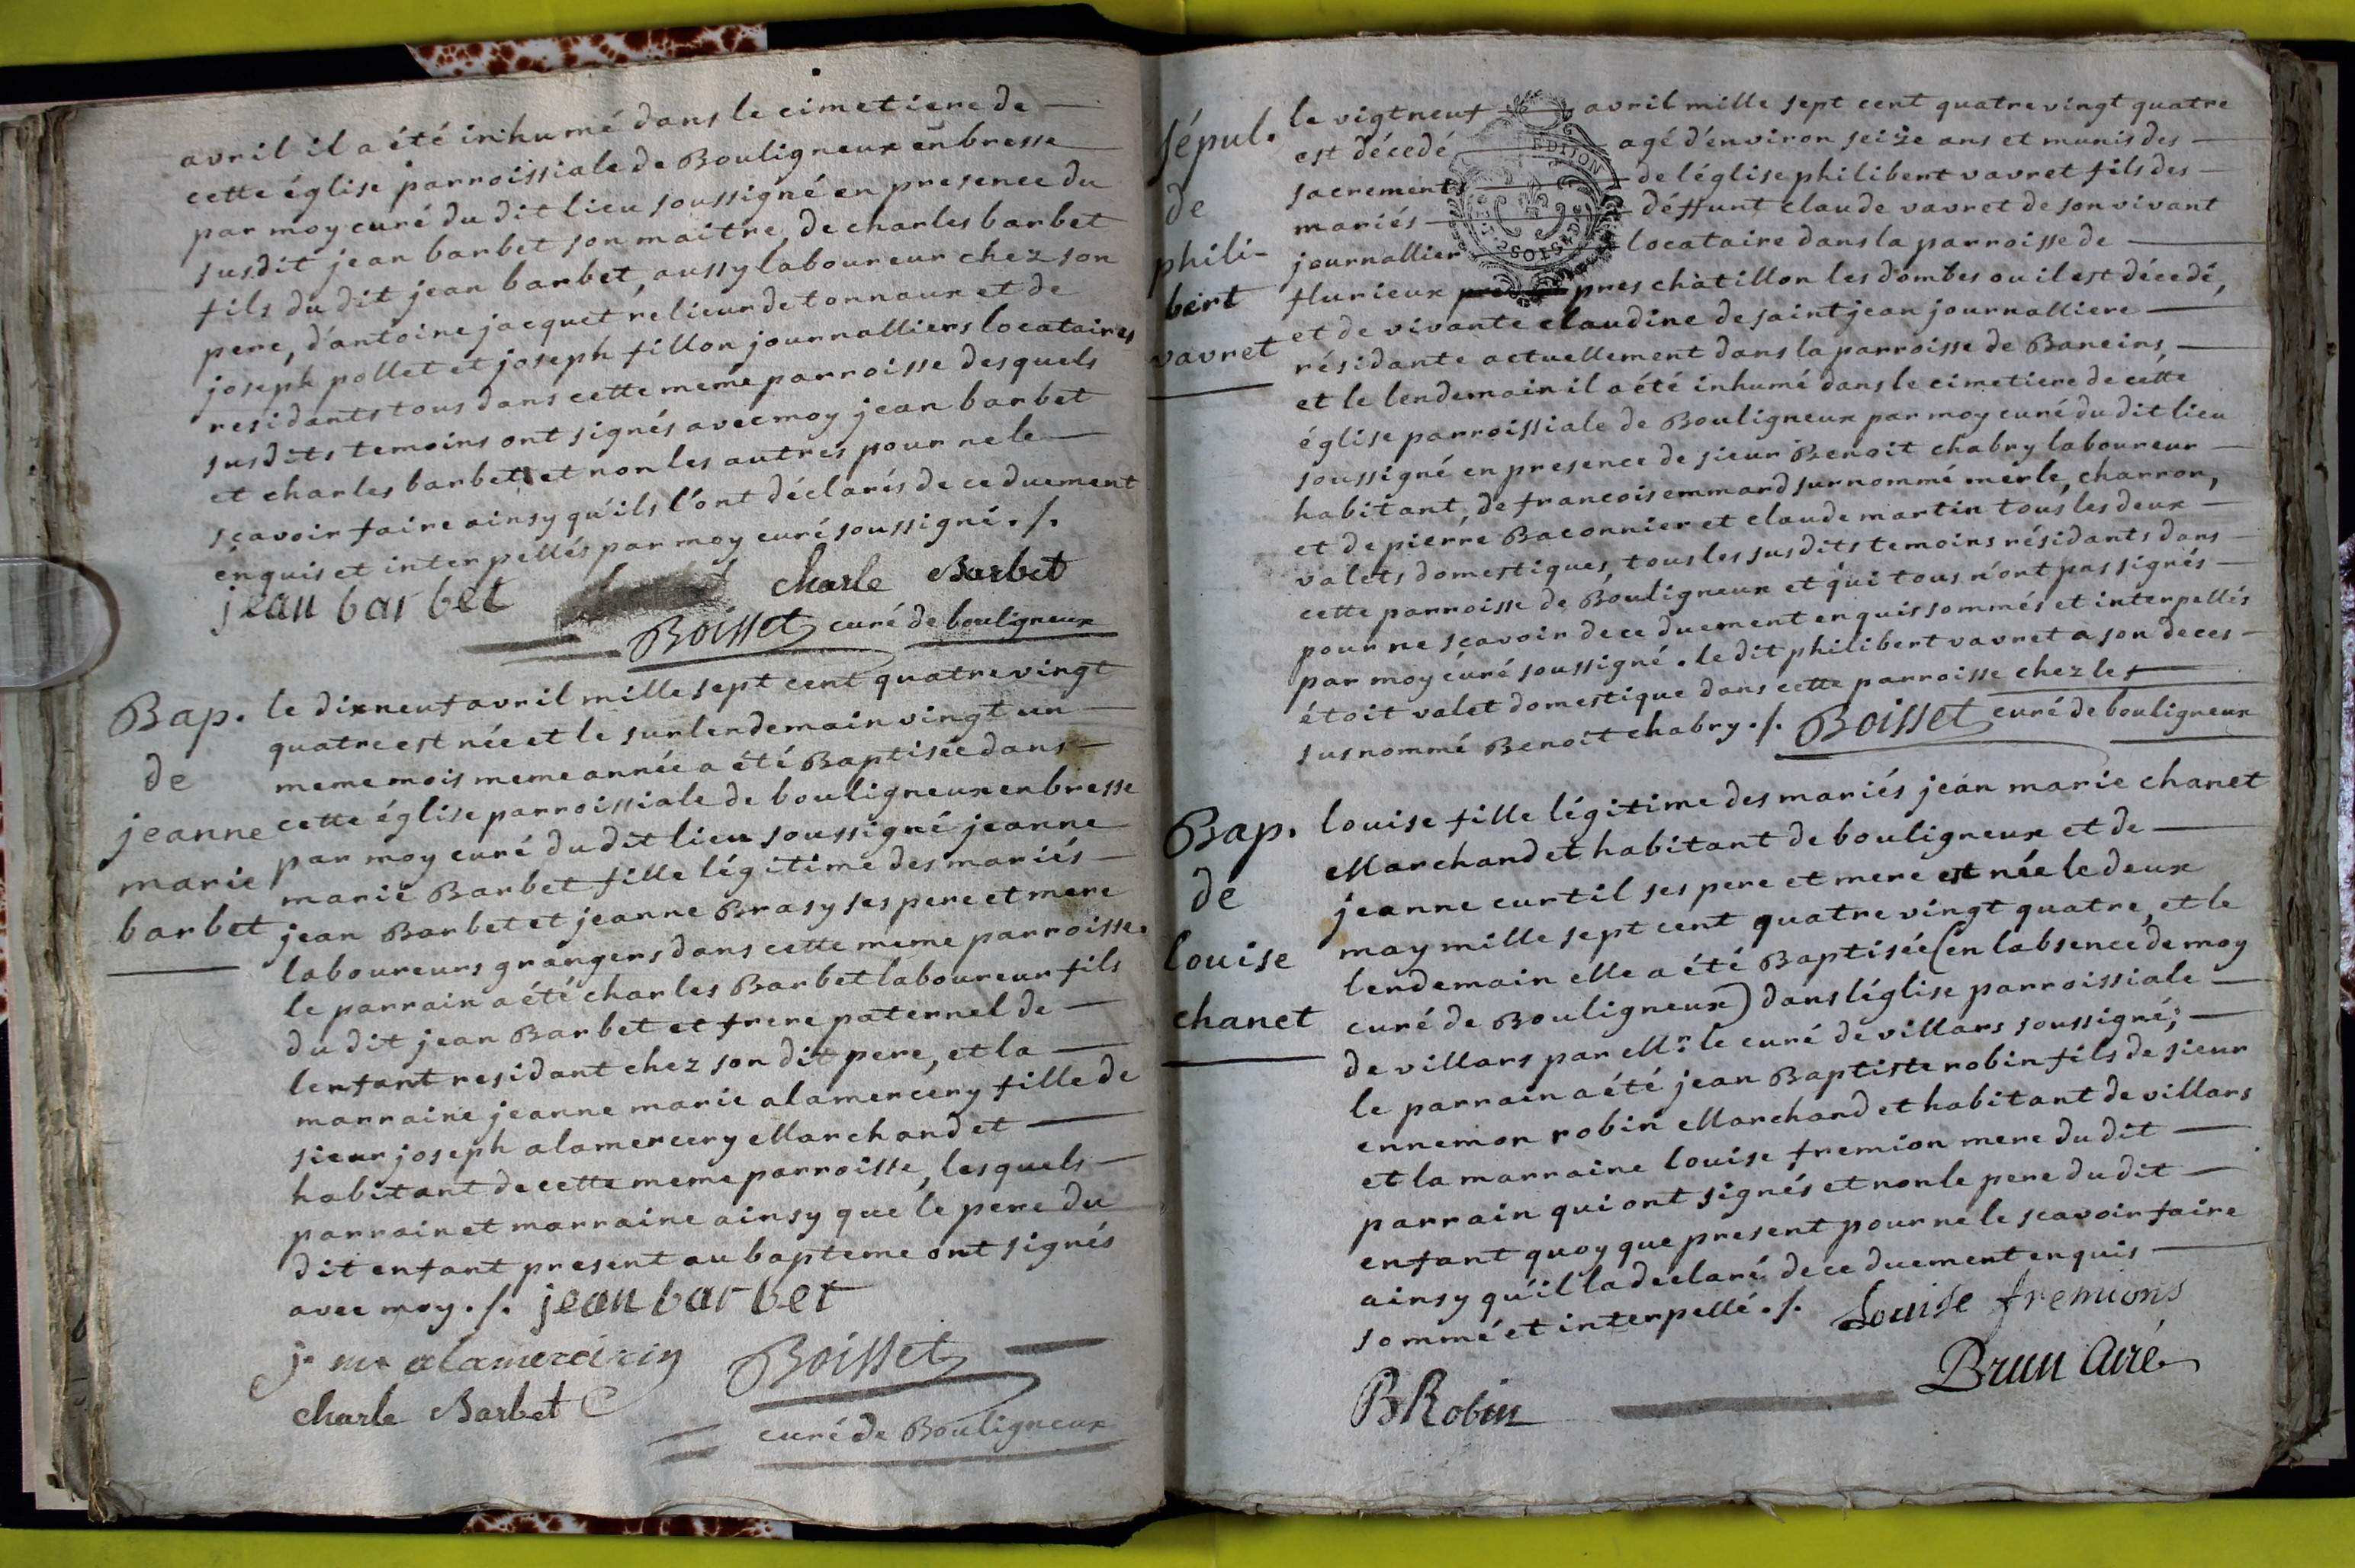 avril il a été inhumé dans le cimetiere de
cette église parroissiale de Bouligneux en bresse
par moy curé du dit lieu soussigné en presence du
susdit jean barbet son maitre, de charles barbet
fils du dit jean barbet, aussy laboureur chez son
pere, d'antoine jacquet relieur de tonnaux et de
joseph pollet et joseph fillon journalliers locataires
residants tous dans cette meme parroisse desquels
susdits temoins ont signés avec moy jean barbet
et charles barbet et non les autres pour ne le
scavoir faire ainsy qu'ils l'ont déclarés de ce duement
enquis et interpellés par moy curé soussigné ./.
jean barbet charle Barbet
Boisset curé de bouligneux
Bap.
de
jeanne
marie
barbet
le dixneuf avril mille sept cent quatre vingt
quatre est née et le surlendemain vingt un
meme mois meme année a été Baptisée dans
cette église parroissiale de bouligneux en bresse
par moy curé du dit lieu soussigné jeanne
marie Barbet fille légitime des mariés
jean Barbet et jeanne Brasy ses pere et mere
laboureurs grangers dans cette meme parroisse.
le parrain a été charles Barbet laboureur fils
du dit jean Barbet et frere paternel de
lenfant residant chez son dit pere, et la
marraine jeanne marie alamercery fille de
sieur joseph alamercery Marchand et
habitant de cette meme parroisse, lesquels
parrain et marraine ainsy que le pere du
dit enfant present au bapteme ont signés
avec moy ./. jean barbet
j. m. alamercery Boisset
charle Barbet
curé de Bouligneux
sépul.
de
phili-
bert
vavret
le vigt neuf avril mille sept cent quatre vingt quatre
est décedé agé d'environ seize ans et munis des
sacrements de l'église philibert vavret fils des
mariés déffunt claude vavret de son vivant
journallier locataire dans la parroisse de
flurieux pres chàtillon les dombes ou il est décedé,
et de vivante claudine de saint jean journalliere
résidante actuellement dans la parroisse de Baneins,
et le lendemain il a été inhumé dans le cimetiere de cette
église parroissiale de Bouligneux par moy curé du dit lieu
soussigné en presence de sieur Benoit chabry laboureur
habitant, de francois emmard surnommé merle, charron,
et de pierre Baconnier et claude martin tous les deux
valets domestiques, tous les susdits temoins résidants dans
cette parroisse de Bouligneux et qui tous n'ont pas signés
pour ne scavoir de ce duement enquis sommés et interpellés
par moy curé soussigné. le dit philibert vavret a son deces
étoit valet domestique dans cette parroisse chez le
susnommé Benoit chabry ./. Boisset curé de bouligneux
Bap.
de
louise
chanet
louise fille légitime des mariés jean marie chanet
Marchand et habitant de bouligneux et de
jeanne curtil ses pere et mere est née le deux
may mille sept cent quatre vingt quatre, et le
lendemain elle a été Baptisée (en labsence de moy
curé de Bouligneux) dans léglise parroissiale
de villars par Mr. le curé de villars soussigné;
le parrain a été jean Baptiste robin fils de sieur
ennemon robin Marchand et habitant de villars
et la marraine louise fremion mere du dit
parrain qui ont signés et non le pere du dit
enfant quoy que present pour ne le scavoir faire
ainsy qu'il la declaré de ce duement enquis
sommé et interpellé ./. Louise fremions
BRobin
Brun Curé